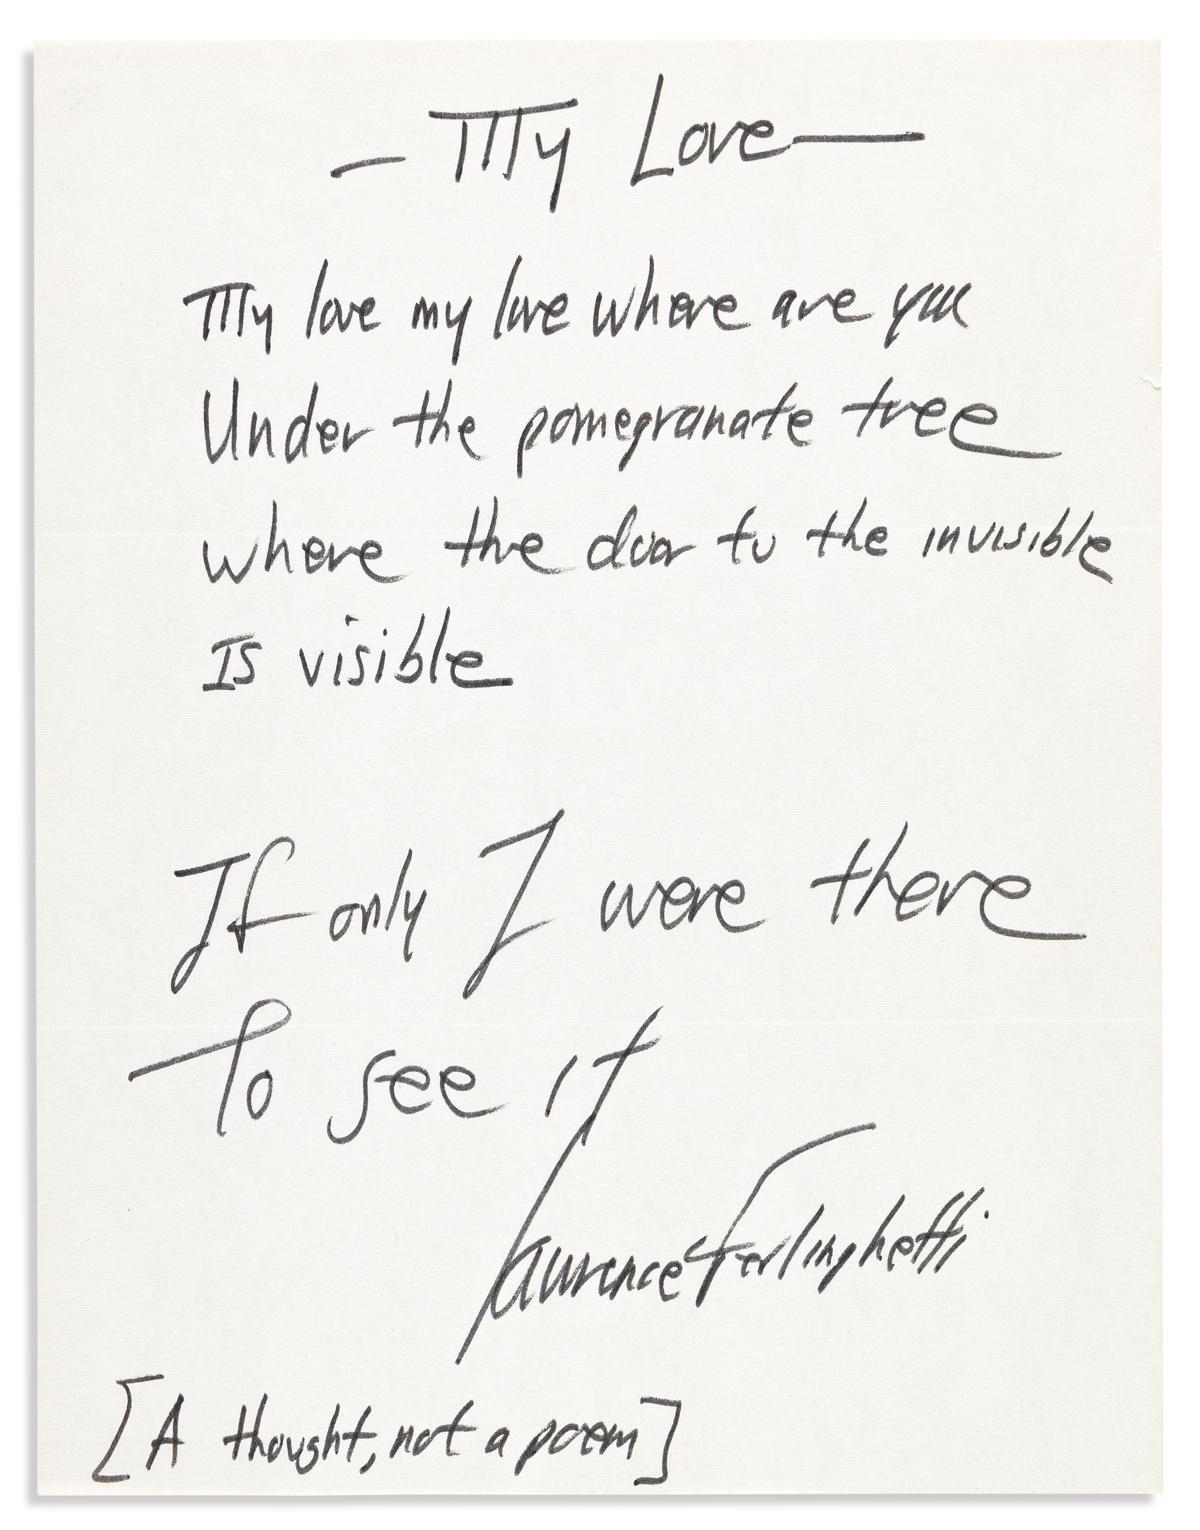 — My Love —
My love my love where are you
Under the pomegranate tree
where the door to the invisible
Is visible
If only I were there
To see it
Lawrence Ferlinghetti
[A thought, not a poem]